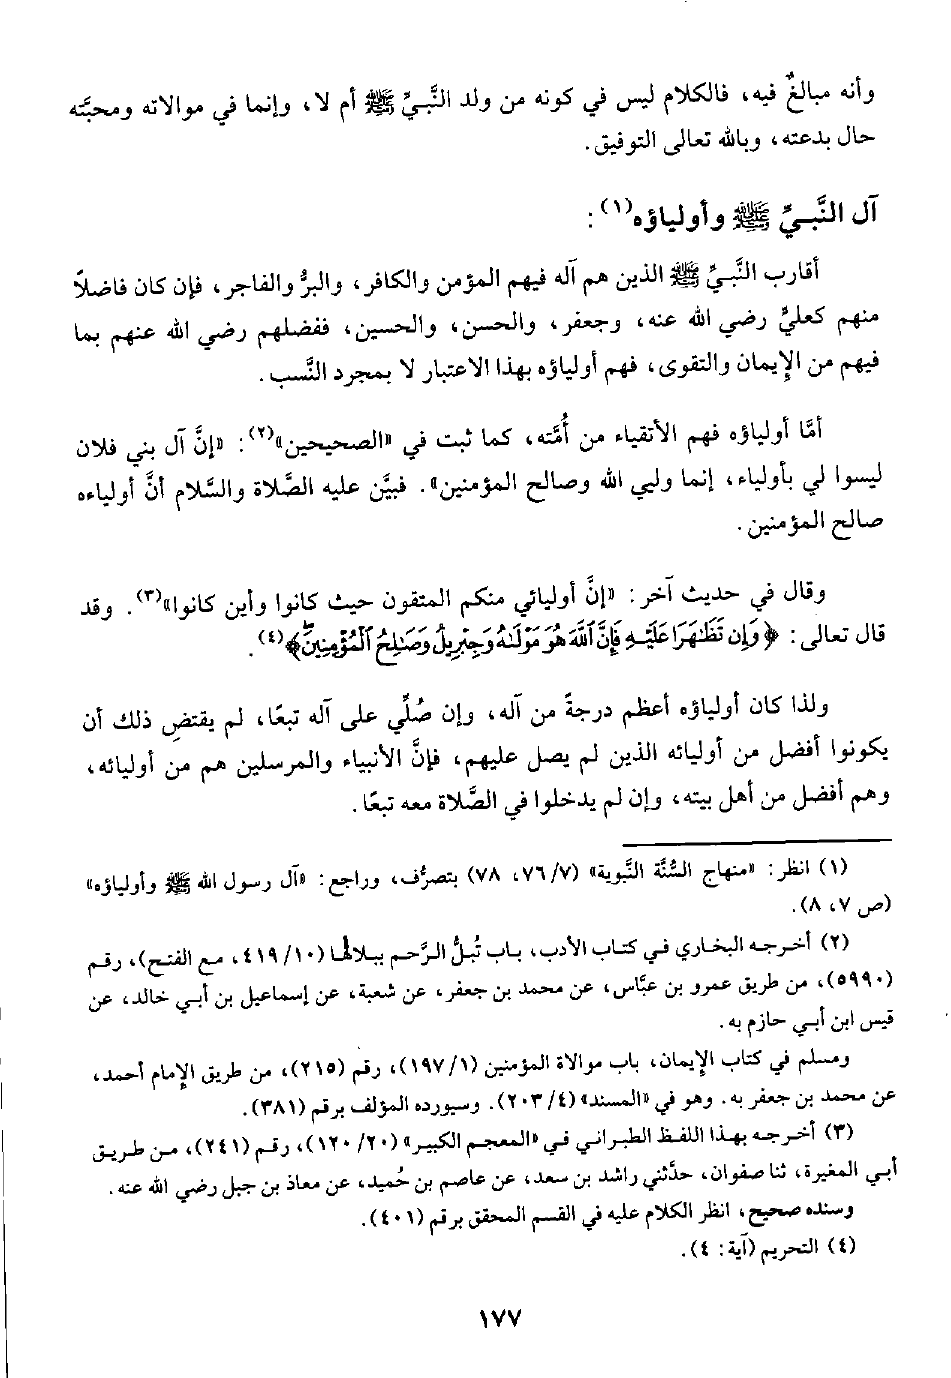 وأنه مبالغٌ فيه، فالكلام ليس في كونه من ولد النَّبيِّ ﷺ أم لا، وإنما في موالاته ومحبَّته
حال بدعته، وبالله تعالى التوفيق.
آل النَّبيِّ ﷺ وأولياؤه(١):
أقارب النَّبيِّ ﷺ الذين هم آله فيهم المؤمن والكافر، والبرُّ والفاجر، فإن كان فاضلاً
منهم كعليٍّ رضي الله عنه، وجعفر، والحسن، والحسين، ففضلهم رضي الله عنهم بما
فيهم من الإيمان والتقوى، فهم أولياؤه بهذا الاعتبار لا بمجرد النَّسب.
أمَّا أولياؤه فهم الأتقياء من أُمَّته، كما ثبت في «الصحيحين»(٢): «إنَّ آل بني فلان
ليسوا لي بأولياء، إنما وليي الله وصالح المؤمنين». فبيَّن عليه الصَّلاة والسَّلام أنَّ أولياءه
صالح المؤمنين.
وقال في حديث آخر: «إنَّ أوليائي منكم المتقون حيث كانوا وأين كانوا»(٣). وقد
قال تعالى: ﴿وَإِن تَظَٰهَرَا عَلَيْهِ فَإِنَّ ٱللَّهَ هُوَ مَوْلَىٰهُ وَجِبْرِيلُ وَصَٰلِحُ ٱلْمُؤْمِنِينَ﴾(٤).
ولذا كان أولياؤه أعظم درجةً من آله، وإن صُلِّي على آله تبعًا، لم يقتضِ ذلك أن
يكونوا أفضل من أوليائه الذين لم يصل عليهم، فإنَّ الأنبياء والمرسلين هم من أوليائه،
وهم أفضل من أهل بيته، وإن لم يدخلوا في الصَّلاة معه تبعًا.
(١) انظر: «منهاج السُّنَّة النَّبوية» (٧/ ٧٦، ٧٨) بتصرُّف، وراجع: «آل رسول الله ﷺ وأولياؤه»
(ص ٧، ٨).
(٢) أخرجه البخاري في كتاب الأدب، باب تُبَلُّ الرَّحم ببلالها (١٠/ ٤١٩، مع الفتح)، رقم
(٥٩٩٠)، من طريق عمرو بن عبَّاس، عن محمد بن جعفر، عن شعبة، عن إسماعيل بن أبي خالد، عن
قيس ابن أبي حازم به.
ومسلم في كتاب الإيمان، باب موالاة المؤمنين (١/ ١٩٧)، رقم (٢١٥)، من طريق الإمام أحمد،
عن محمد بن جعفر به. وهو في «المسند» (٤/ ٢٠٣). وسيورده المؤلف برقم (٣٨١).
(٣) أخرجه بهذا اللفظ الطبراني في «المعجم الكبير» (٢٠/ ١٢٠)، رقم (٢٤١)، من طريق
أبي المغيرة، ثنا صفوان، حدَّثني راشد بن سعد، عن عاصم بن حُميد، عن معاذ بن جبل رضي الله عنه.
وسنده صحيح، انظر الكلام عليه في القسم المحقق برقم (٤٠١).
(٤) التحريم (آية: ٤).
١٧٧